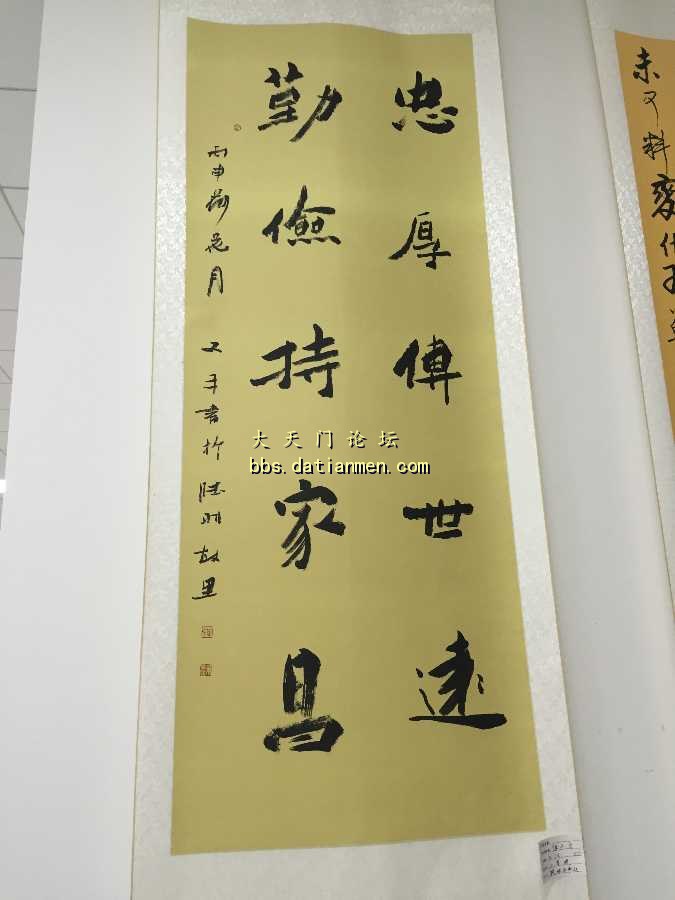 忠厚傳世遠
勤儉持家昌
丙申荷花月
又平書於 陸羽故里
大天门论坛
bbs.datianmen.com
未又料變化